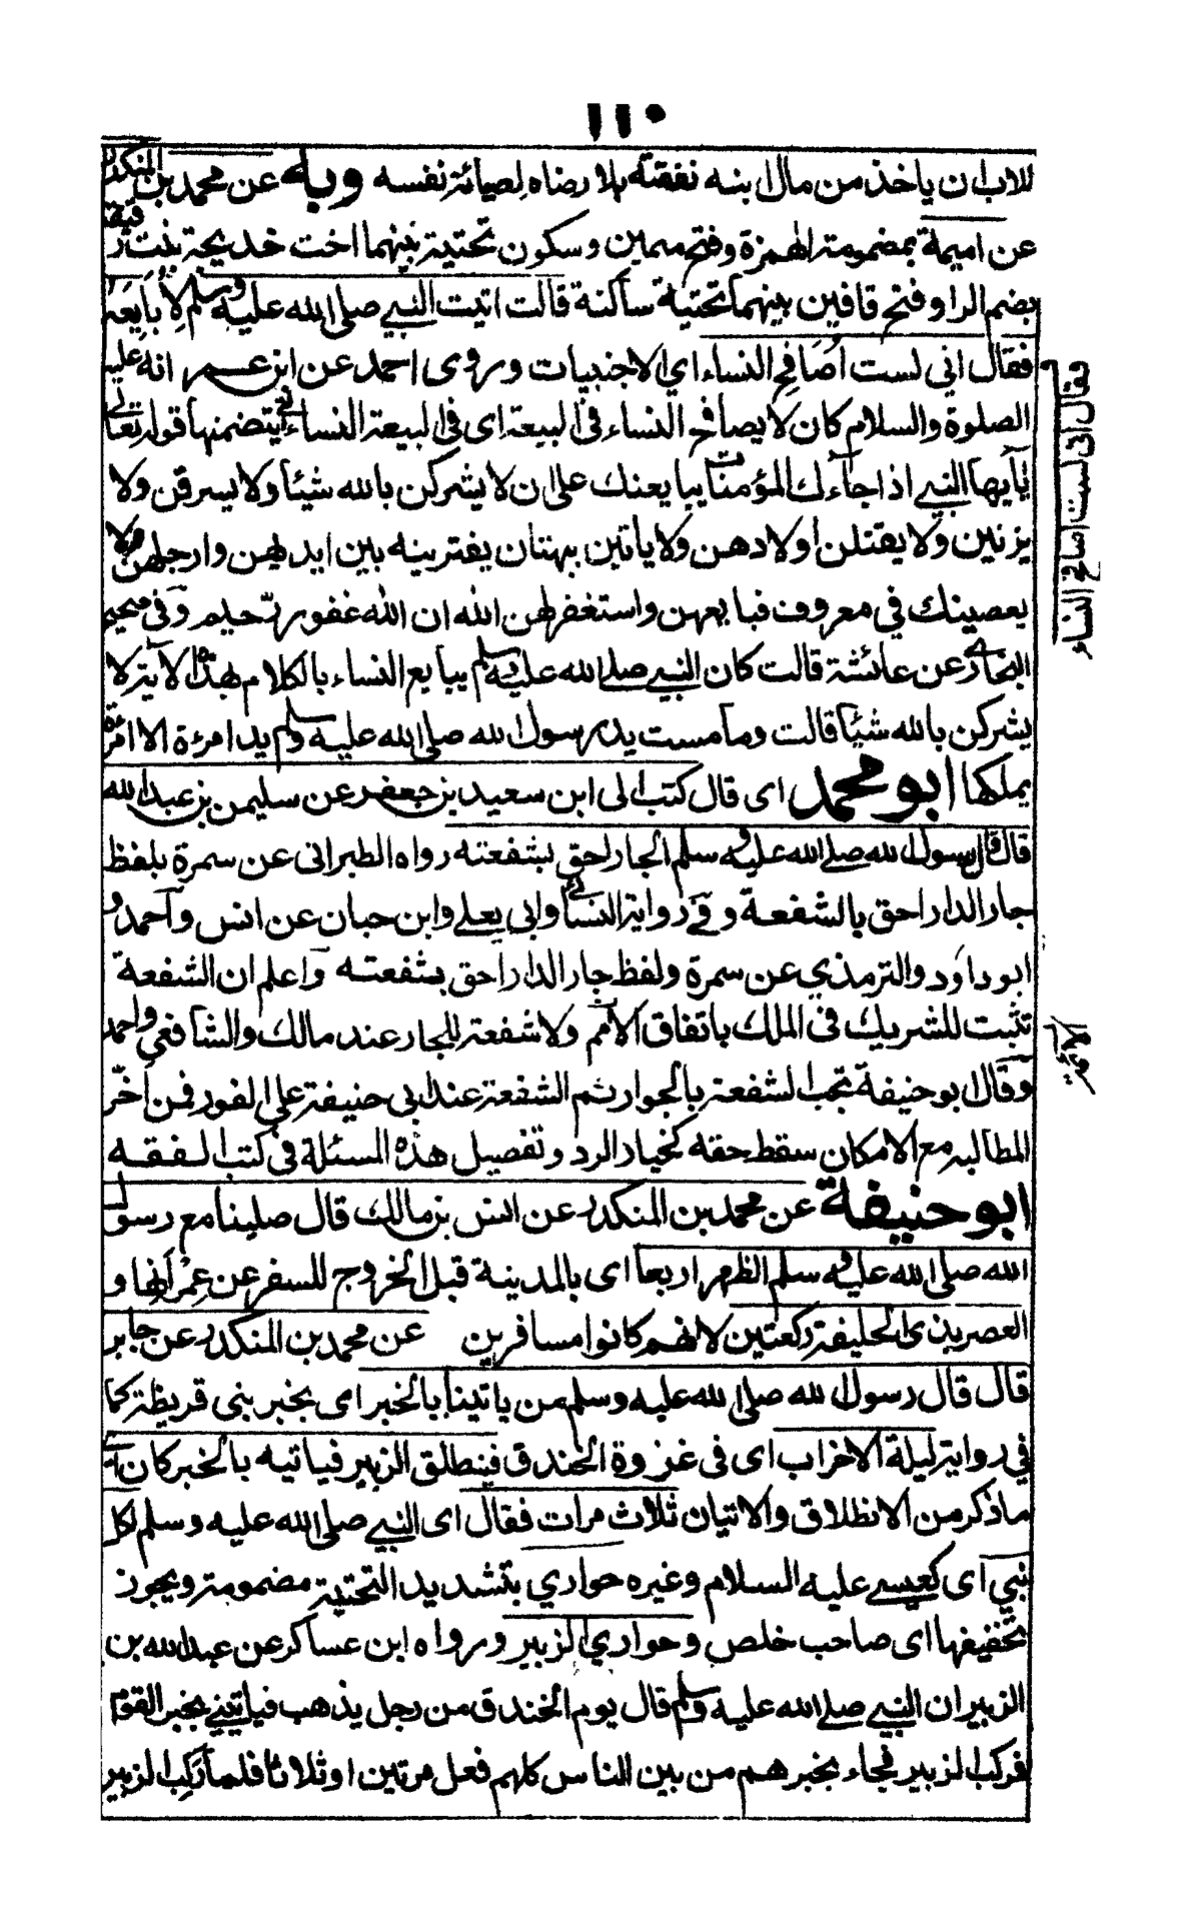 ١١٠
للاب ان ياخذ من مال ابنه نفقته بلا رضاه لصيانة نفسه وبه عن محمد بن المنكدر
عن اميمة بمضمومة الهمزة وفتح ميمين وسكون تحتية بينهما اخت خديجة بنت رقيقة
بضم الرا وفتح قافين بينهما تحتية ساكنة قالت اتيت النبي صلى الله عليه وسلم لابايعه
فقال اني لست اصافح النساء اي الاجنبيات وروى احمد عن ابن عمر انه عليه
الصلوة والسلام كان لا يصافح النساء في البيعة اى في البيعة النساء التي يتضمنها قوله تعالى
يٰآيها النبي اذا جاءك المؤمنات يبايعنك على ان لا يشركن بالله شيئا ولا يسرقن ولا
يزنين ولا يقتلن اولادهن ولا ياتين ببهتان يفترينه بين ايديهن وارجلهن ولا
يعصينك في معروف فبايعهن واستغفر لهن الله ان الله غفور رحيم وفى صحيح
البخارى عن عائشة قالت كان النبي صلى الله عليه وسلم يبايع النساء بالكلام بهذه الاية لا
يشركن بالله شيئا قالت وما مست يد رسول الله صلى الله عليه وسلم يد امرءة الا امرءة
يملكها ابو محمد اى قال كتب الى ابن سعيد بن جعفر عن سليمن بن عبد الله
قال قال رسول الله صلى الله عليه وسلم الجار احق بشفعته رواه الطبرانى عن سمرة بلفظ
جار الدار احق بالشفعة وفي رواية النسائي وابى يعلى وابن حبان عن انس واحمد و
ابو داود والترمذي عن سمرة ولفظ جار الدار احق بشفعته واعلم ان الشفعة
تثبت للشريك فى الملك باتفاق الائمة ولا شفعة للجار عند مالك والشافعي واحمد
وقال ابو حنيفة تجب الشفعة بالجوار ثم الشفعة عند ابى حنيفة على الفور فمن اخّر
المطالبه مع الامكان سقط حقه كخيار الرد وتفصيل هذه المسئلة فى كتب الفقه
ابو حنيفة عن محمد بن المنكدر عن انس بن مالك قال صلينا مع رسول
الله صلى الله عليه وسلم الظهر اربعا اى بالمدينة قبل الخروج للسفر عن عمرانها و
العصر بذى الحليفة ركعتين لانهم كانوا مسافرين عن محمد بن المنكدر عن جابر
قال قال رسول الله صلى الله عليه وسلم من ياتينا بالخبر اى بخبر بنى قريظة كما
في رواية ليلة الاحزاب اى فى غزوة الخندق فينطلق الزبير فياتيه بالخبر كان اى
ما ذكر من الانطلاق والاتيان ثلاث مرات فقال اى النبي صلى الله عليه وسلم لكل
نبي اى كعيسى عليه السلام وغيره حواري بتشديد التحتية مضمومة ويجوز
تخفيفها اى صاحب خلص وحواري الزبير ورواه ابن عساكر عن عبد الله بن
الزبير ان النبي صلى الله عليه وسلم قال يوم الخندق من رجل يذهب فياتينى بخبر القوم
فركب الزبير فجاء بخبرهم من بين الناس كلهم فعل مرتين او ثلاثا فلما ركب الزبير
فقال انى لست اصافح النساء
الائمة